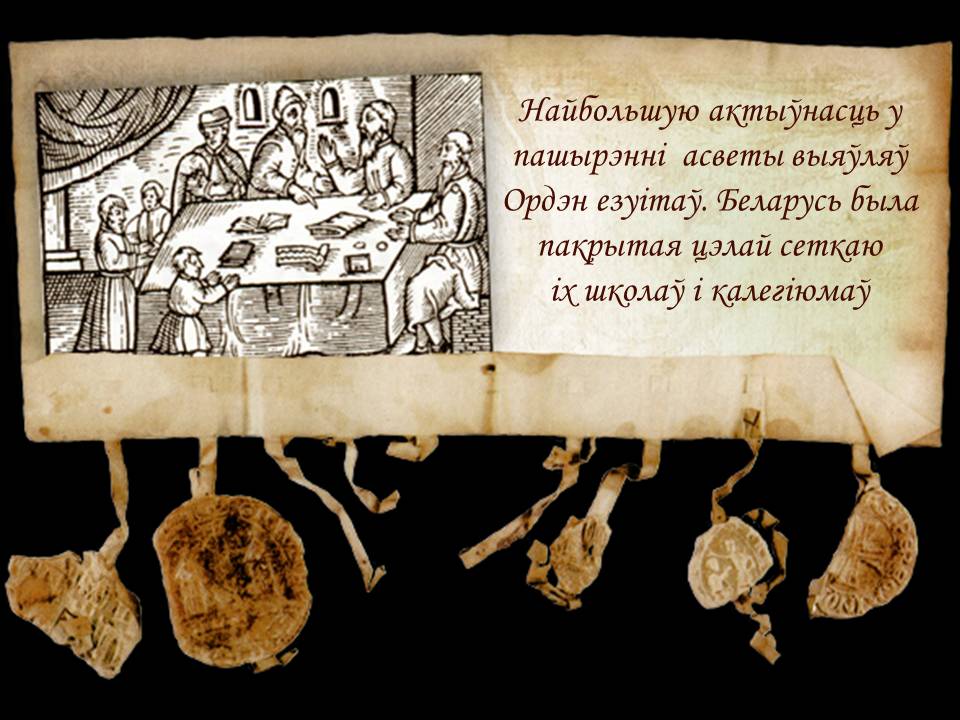 Найбольшую актыўнасць у
пашырэнні асветы выяўляў
Ордэн езуітаў. Беларусь была
пакрытая цэлай сеткаю
іх школаў і калегіюмаў